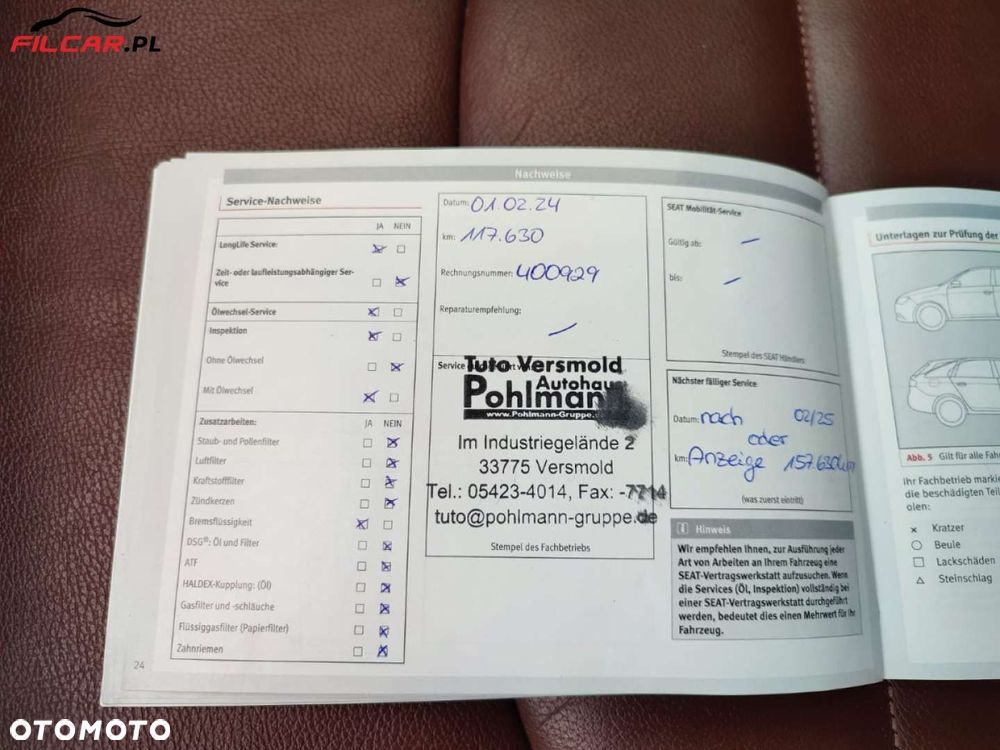 FILCAR.PL
Nachweise
Service-Nachweise
JA NEIN
LongLife Service:
Zeit- oder laufleistungsabhängiger Ser-
vice
Ölwechsel-Service
Inspektion
Ohne Ölwechsel
Mit Ölwechsel
Zusatzarbeiten: JA NEIN
Staub- und Pollenfilter
Luftfilter
Kraftstofffilter
Zündkerzen
Bremsflüssigkeit
DSG®: Öl und Filter
ATF
HALDEX-Kupplung: (Öl)
Gasfilter und -schläuche
Flüssiggasfilter (Papierfilter)
Zahnriemen
24
Datum: 01.02.24
km: 117.630
Rechnungsnummer: 400929
Reparaturempfehlung:
Service
Tuto Versmold
Autohaus
Pohlmann
www.Pohlmann-Gruppe.
Im Industriegelände 2
33775 Versmold
Tel.: 05423-4014, Fax: -7714
tuto@pohlmann-gruppe.de
Stempel des Fachbetriebs
SEAT Mobilität-Service
Gültig ab: –
bis: –
Stempel des SEAT Händlers
Nächster fälliger Service
Datum: nach 02/25
oder
km: Anzeige 157.630km
(was zuerst eintritt)
Hinweis
Wir empfehlen Ihnen, zur Ausführung jeder
Art von Arbeiten an Ihrem Fahrzeug eine
SEAT-Vertragswerkstatt aufzusuchen. Wenn
die Services (Öl, Inspektion) vollständig bei
einer SEAT-Vertragswerkstatt durchgeführt
werden, bedeutet dies einen Mehrwert für Ihr
Fahrzeug.
Unterlagen zur Prüfung der
Abb. 5 Gilt für alle Fah
Ihr Fachbetrieb markie
die beschädigten Teil
olen:
Kratzer
Beule
Lackschäden
Steinschlag
OTOMOTO